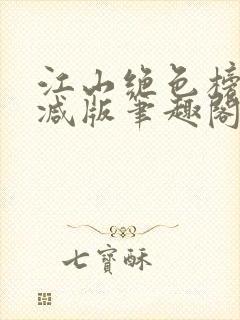 江山绝色榜
减版笔趣阁
七寶酥